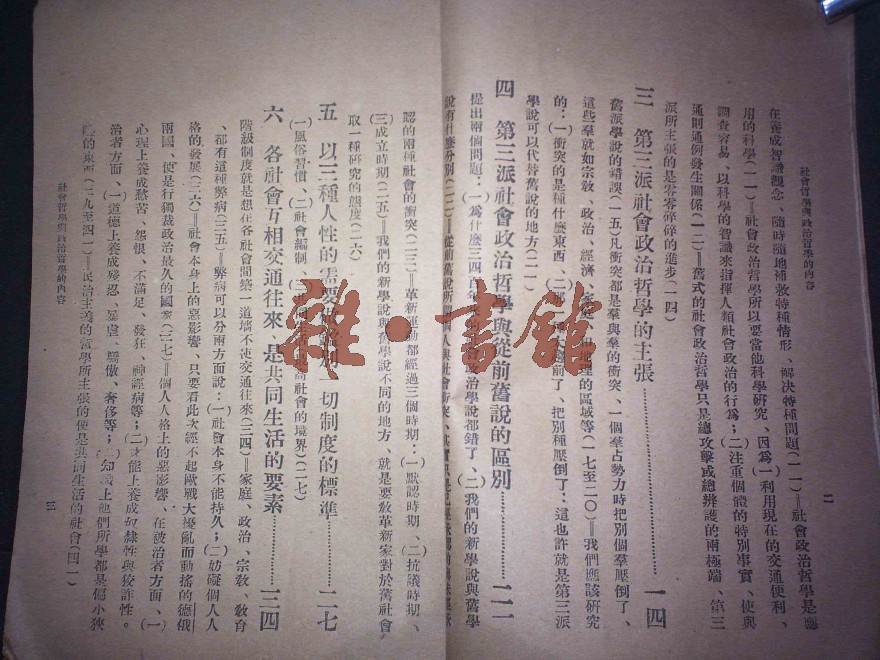 社會哲學與政治哲學的內容
二
在養成智識觀念、隨時隨地補救特種情形、解決特種問題(一一)＝社會政治哲學是應
用的科學(一一)＝社會政治哲學所以要當他科學研究、因爲㈠利用現在的交通便利、
調查容易、以科學的智識來指揮人類社會政治的行爲；㈡注重個體的特別事實、使與
通則通例發生關係(一二)＝舊式的社會政治哲學只是總攻擊或總辨護的兩極端、第三
派所主張的是零零碎碎的進步(一四)
三 第三派社會政治哲學的主張……………一四
舊派學說的錯誤(一五)凡衝突都是羣與羣的衝突、一個羣占勢力時把別個羣壓倒了、
這些羣就如宗敎、政治、經濟、地理的區域等(一七至二〇)＝我們應該研究
的：㈠衝突的是種什麼東西、㈡那一種太過前了、把別種壓倒了：這也許就是第三派
學說可以代替舊說的地方(二一)
四 第三派社會政治哲學與從前舊說的區別……二二
提出兩個問題：㈠爲什麼三四百年政治學說都錯了、㈡我們的新學說與舊學
說有什麼分別(二二)＝從前舊說所個人與社會衝突、
認的兩種社會的衝突(二三)＝革新運動都經過三個時期：㈠默認時期、㈡抗議時期、
㈢成立時期(二五)＝我們的新學說與舊學說不同的地方、就是要敎革新家對於舊社會
取一種研究的態度(二六)
五 以三種人性的需要切制度的標準……二七
㈠風俗習慣、㈡社會編制、社會的境界(二七)
六 各社會互相交通往來是共同生活的要素……三四
階級制度就是想在各社會間築一道墻不使交通往來(三四)＝家庭、政治、宗敎、敎育
、都有這種弊病(三五)＝弊病可以分兩方面說：㈠社會本身不能持久；㈡妨礙個人人
格的發展(三六)＝社會本身上的惡影響、只要看此次經不起歐戰大擾亂而動搖的德俄
兩國、便是行獨裁政治最久的國家(三七)＝個人人格上的惡影響、在被治者方面、㈠
心理上養成愁苦、怨恨、不滿足、發狂、神經病等；㈡才能上養成奴隸性與狡詐性。
治者方面、㈠道德上養成殘忍、暴虐、驕傲、奢侈等；㈡知識上他們所學都是偏小狹
陋的東西(三九至四一)＝民治主義的哲學所主張的便是共同生活的社會(四一)
社會哲學與政治哲學的內容
三
雜·書館